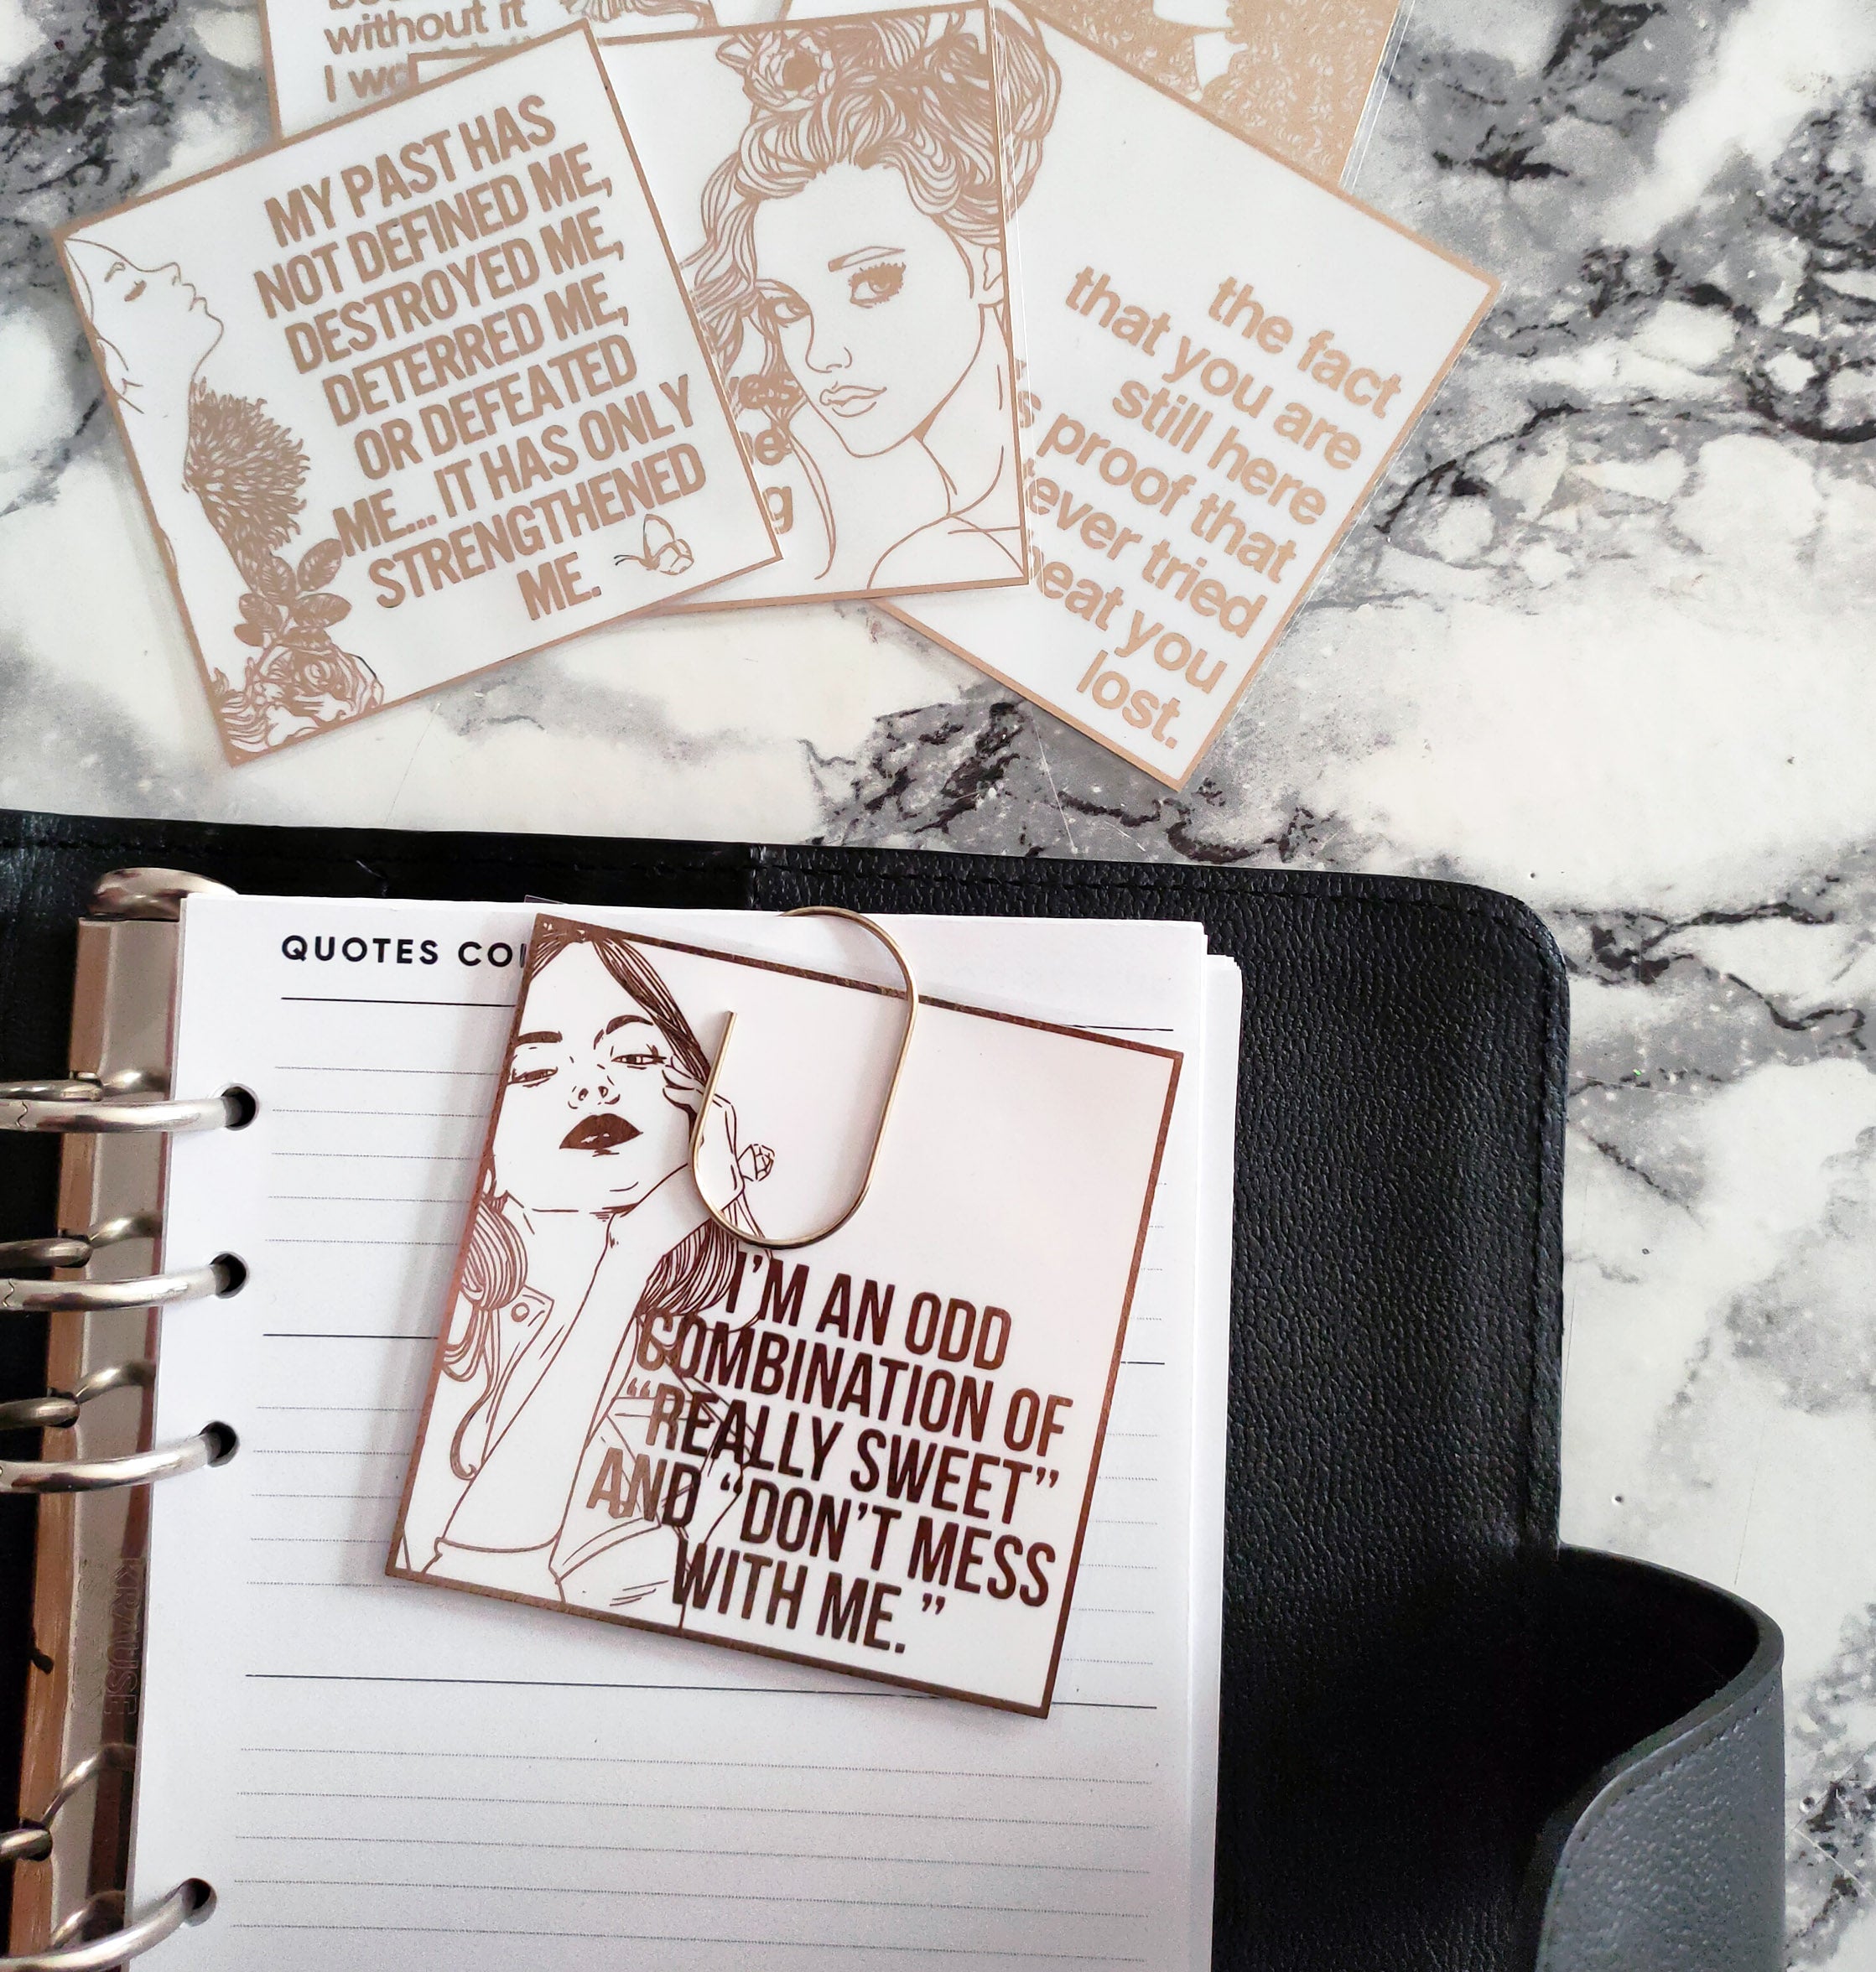 without it
I
MY PAST HAS
NOT DEFINED ME,
DESTROYED ME,
DETERRED ME,
OR DEFEATED
ME... IT HAS ONLY
STRENGTHENED
ME.
the fact
that you are
still here
proof that
ever tried
you
lost.
QUOTES
I'M AN ODD
COMBINATION OF
“REALLY SWEET”
AND “DON'T MESS
WITH ME.”
KRAUSE